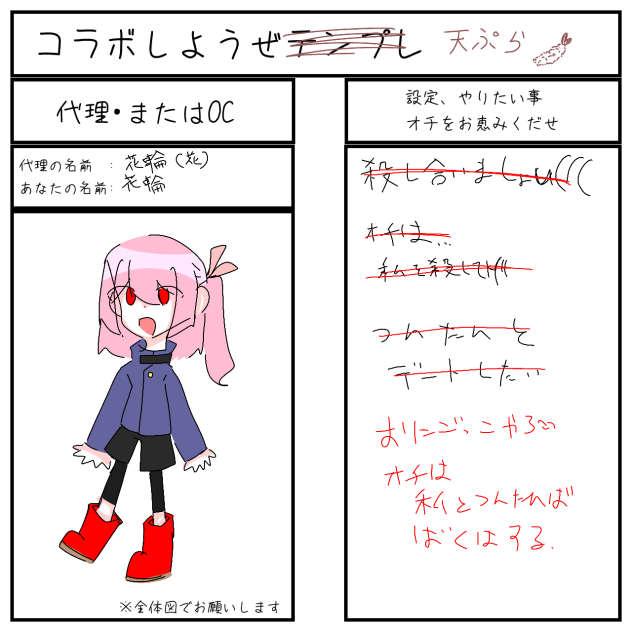 コラボしようぜテンプレ 天ぷら
代理・またはOC
代理の名前 : 花輪(花)
あなたの名前: 花輪
※全体図でお願いします
設定、やりたい事
オチをお恵みくだせ
殺し合いましょu(((
オチは...
私を殺してげ
つんたんと
デートしたい
おにごっこやろ〜
オチは
私とつんたれば
ばくはする.